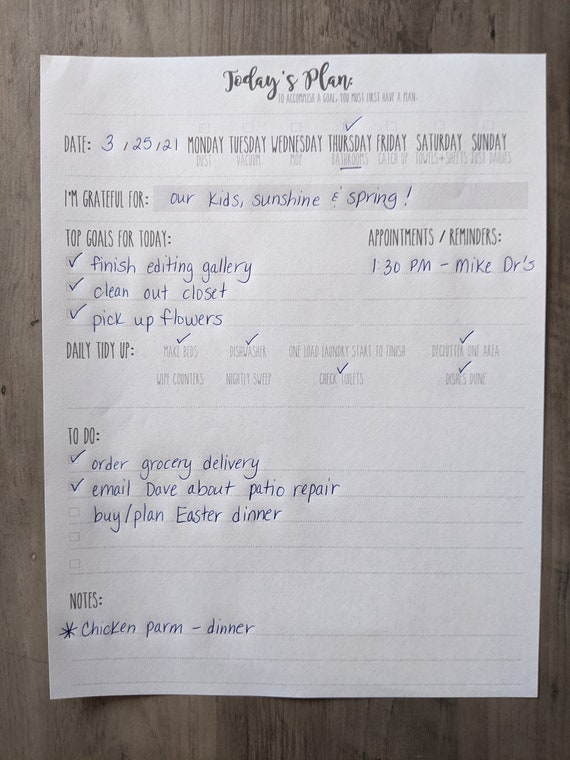 Today's Plan:
TO ACCOMPLISH A GOAL, YOU MUST FIRST HAVE A PLAN.
DATE: 3/25/21 MONDAY TUESDAY WEDNESDAY THURSDAY FRIDAY SATURDAY SUNDAY
DUST VACUUM MOP BATHROOMS CATCH UP TOWELS+SHEETS JUST DAILIES
I'M GRATEFUL FOR: our kids, sunshine & spring!
TOP GOALS FOR TODAY: APPOINTMENTS / REMINDERS:
✓ finish editing gallery 1:30 PM - Mike Dr's
✓ clean out closet
✓ pick up flowers
DAILY TIDY UP: MAKE BEDS DISHWASHER ONE LOAD LAUNDRY START TO FINISH DECLUTTER ONE AREA
WIPE COUNTERS NIGHTLY SWEEP CHECK TOILETS DISHES DONE
TO DO:
✓ order grocery delivery
✓ email Dave about patio repair
buy/plan Easter dinner
NOTES:
* Chicken parm - dinner